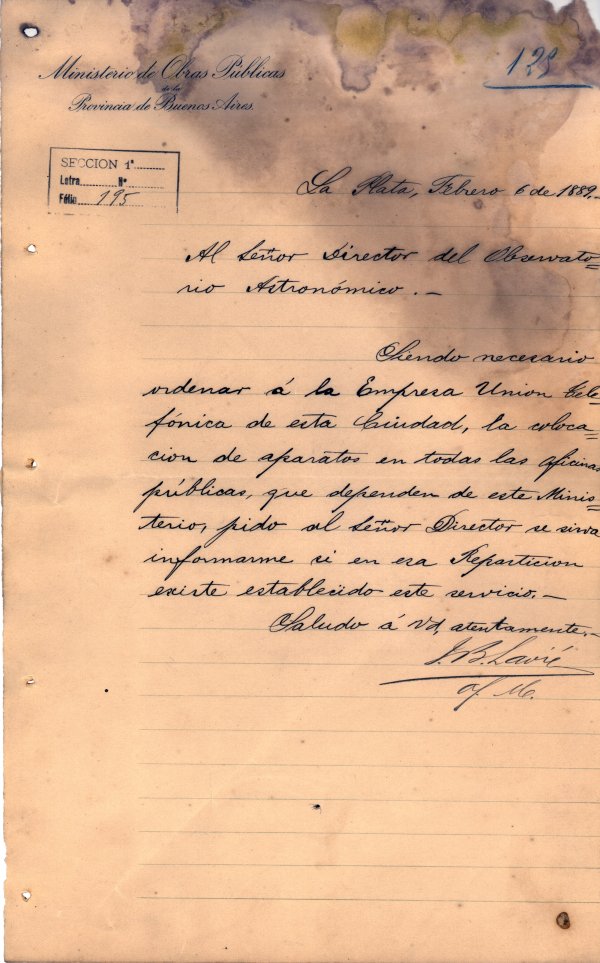 Ministerio de Obras Públicas
de la
Provincia de Buenos Aires
125
SECCION 1ª
Letra Nº
Fólio 195
La Plata, Febrero 6 de 1889.-
Al Señor Director del Observato=
rio Astronómico.-
Siendo necesario
ordenar á la Empresa Union Tele=
fónica de esta Ciudad, la coloca=
cion de aparatos en todas las oficinas
públicas, que dependen de este Minis=
terio, pido al Señor Director se sirva
informarme si en esa Reparticion
existe establecido este servicio.-
Saludo á Vd. atentamente.-
J. B. Lavié
of. M.